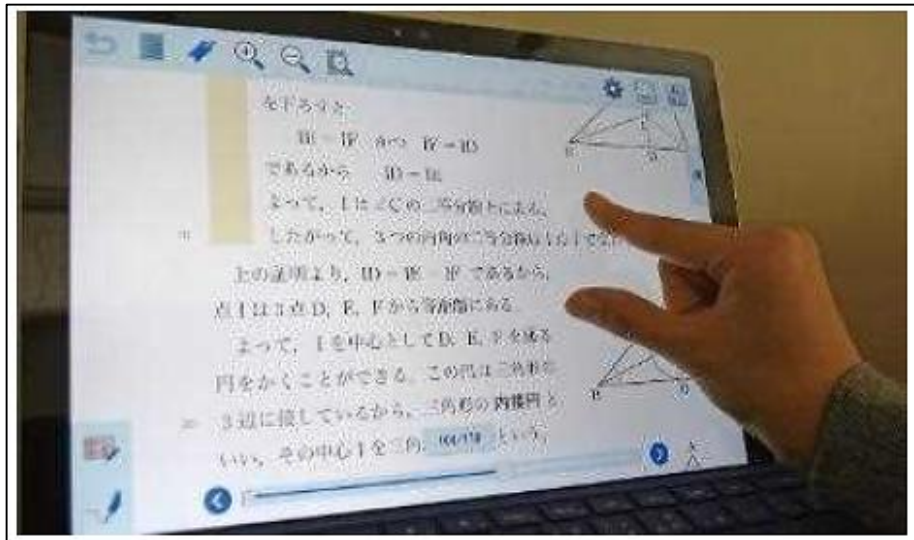 を下ろすと
IE = IF かつ IF = ID
であるから ID = IE
よって, I は ∠C の二等分線上にある。
したがって, 3つの内角の二等分線は1点で
上の証明より, ID = IE = IF であるから,
点 I は3点 D, E, F から等距離にある。
よって, I を中心として D, E, F を通る
円をかくことができる。この円は三角形の
20 3辺に接しているから, 三角形の内接円と
いい, その中心 I を三角 という。
B D
B